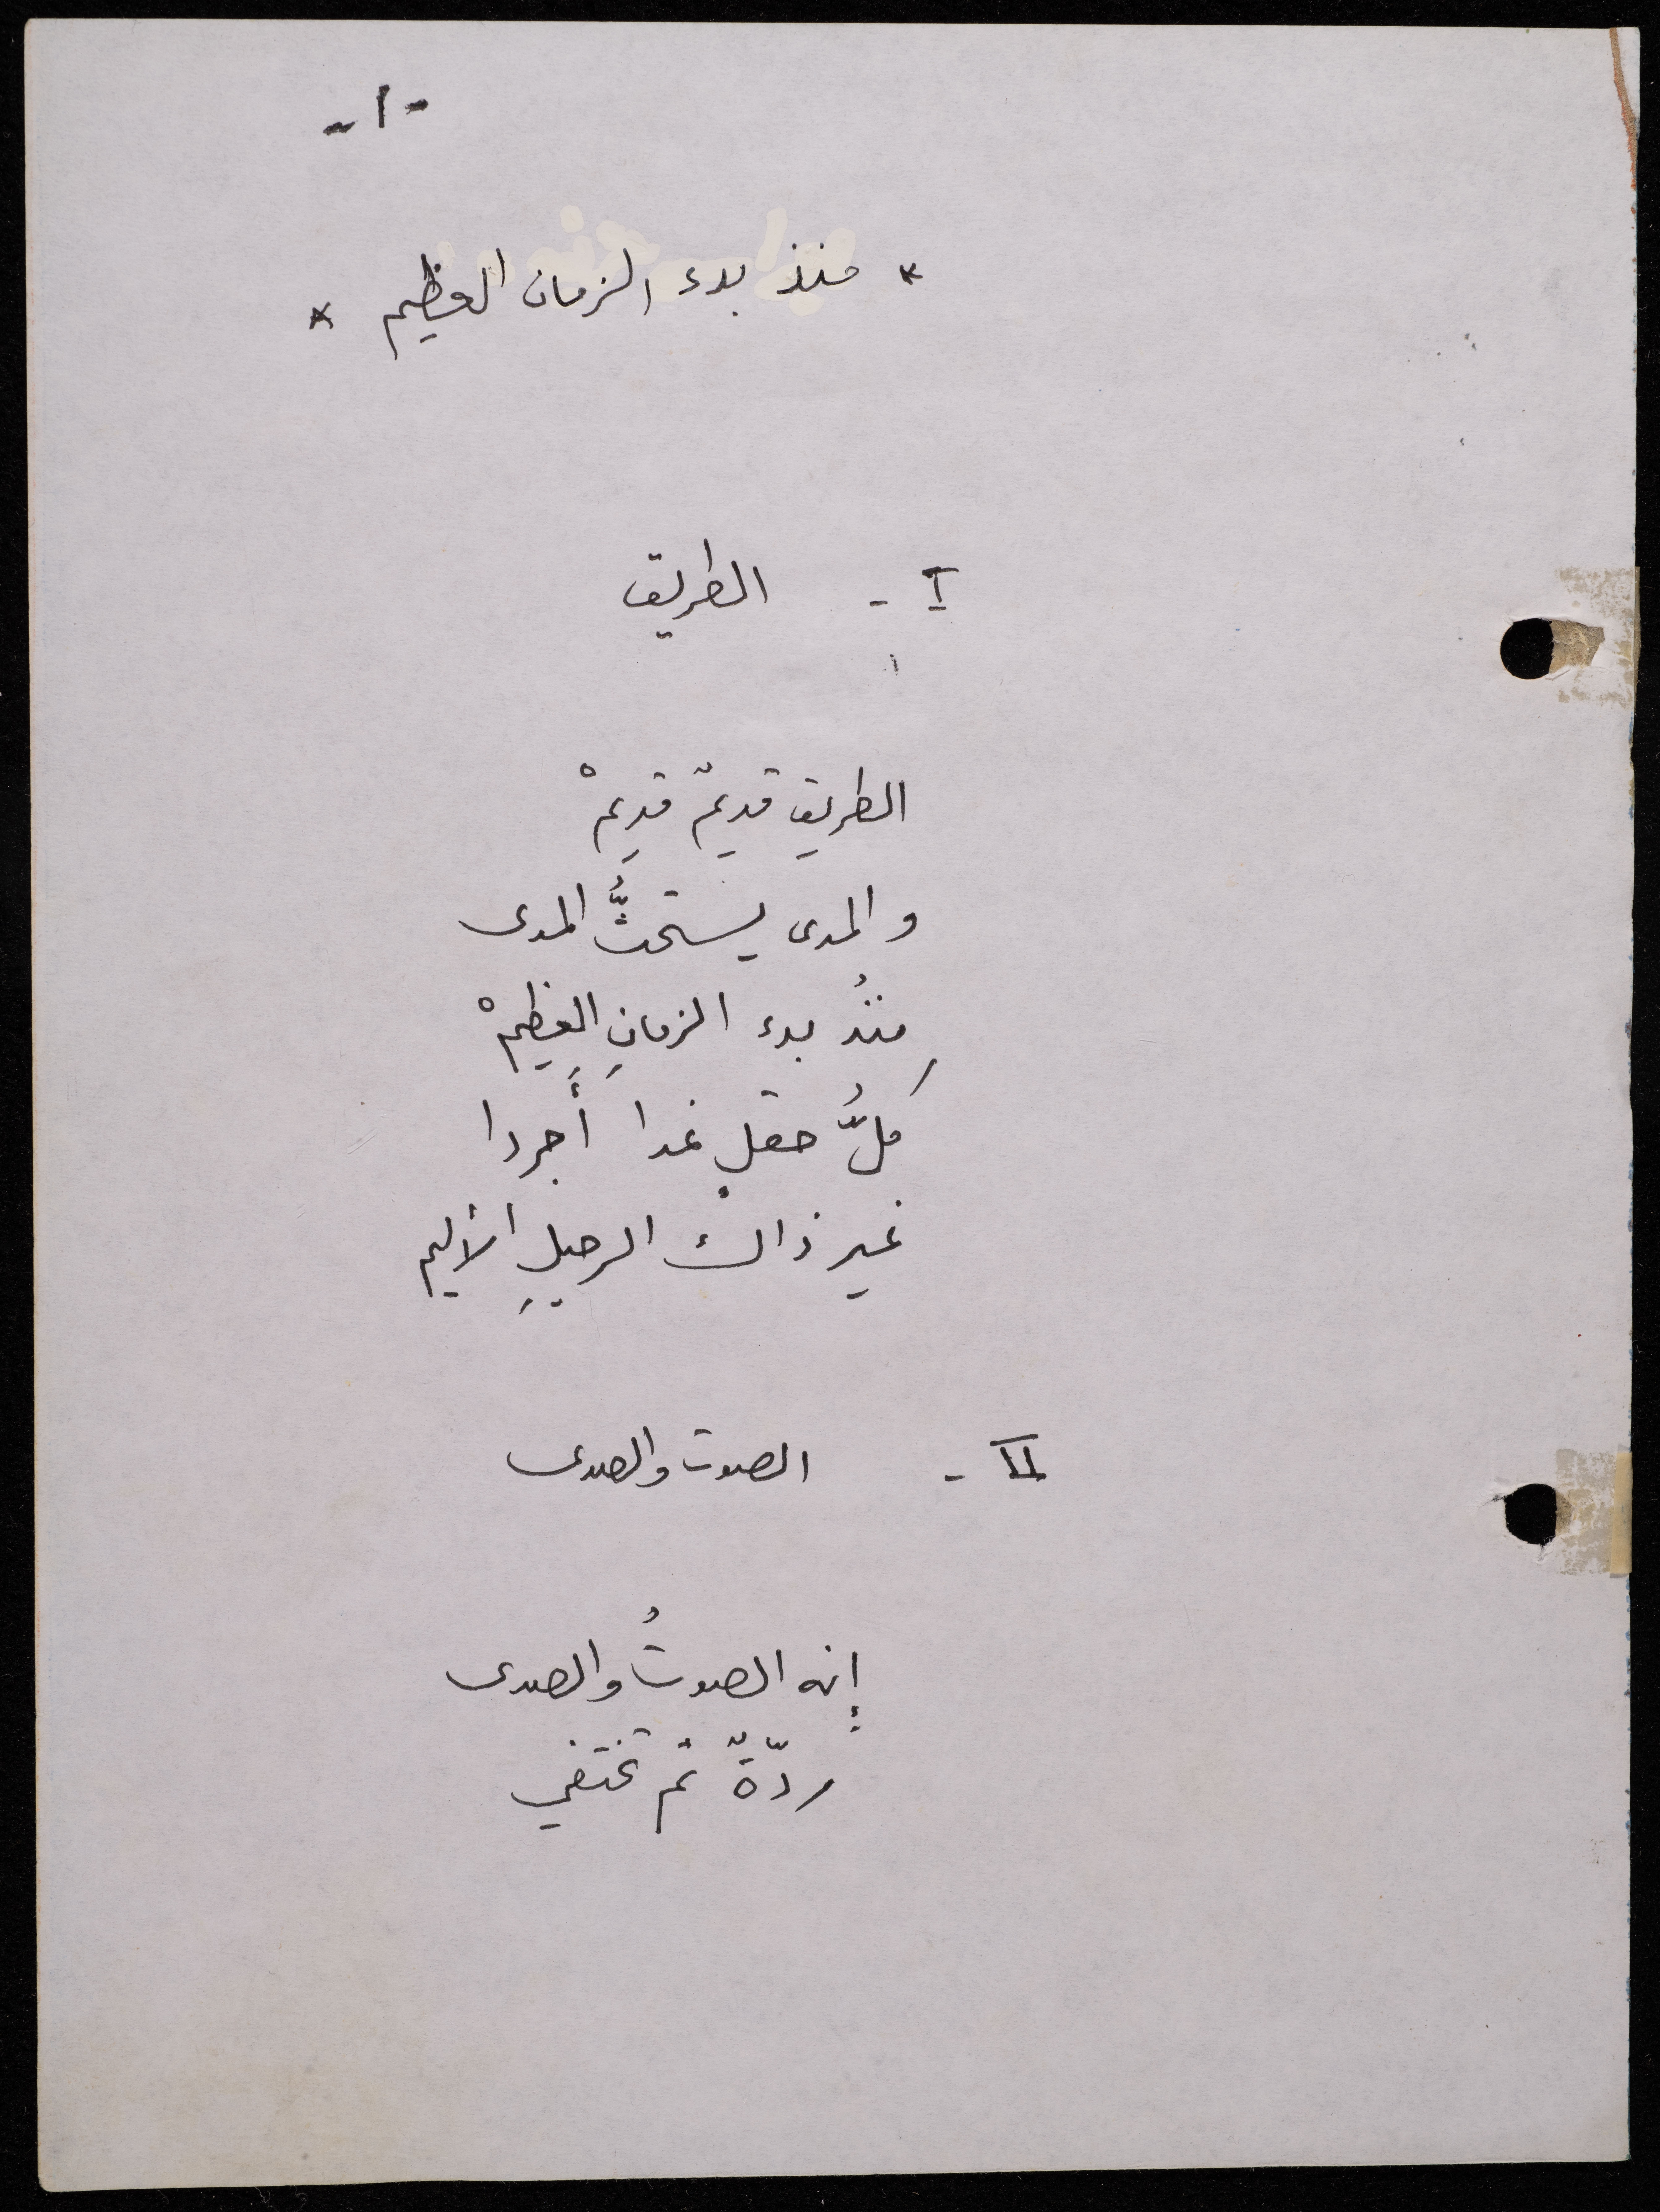 -١-
* منذ بدء الزمان العظيم *
I - الطريق
الطريق قديمٌ قديمْ
والمدى يستحثُّ المدى
منذُ بدء الزمانِ العظيمْ
كلُّ حقلٍ غدا أَجردا
غير ذاك الرحيلِ الأليم
II - الصوت والصدى
إنه الصوتُ والصدى
ردّةٌ ثم تختفي